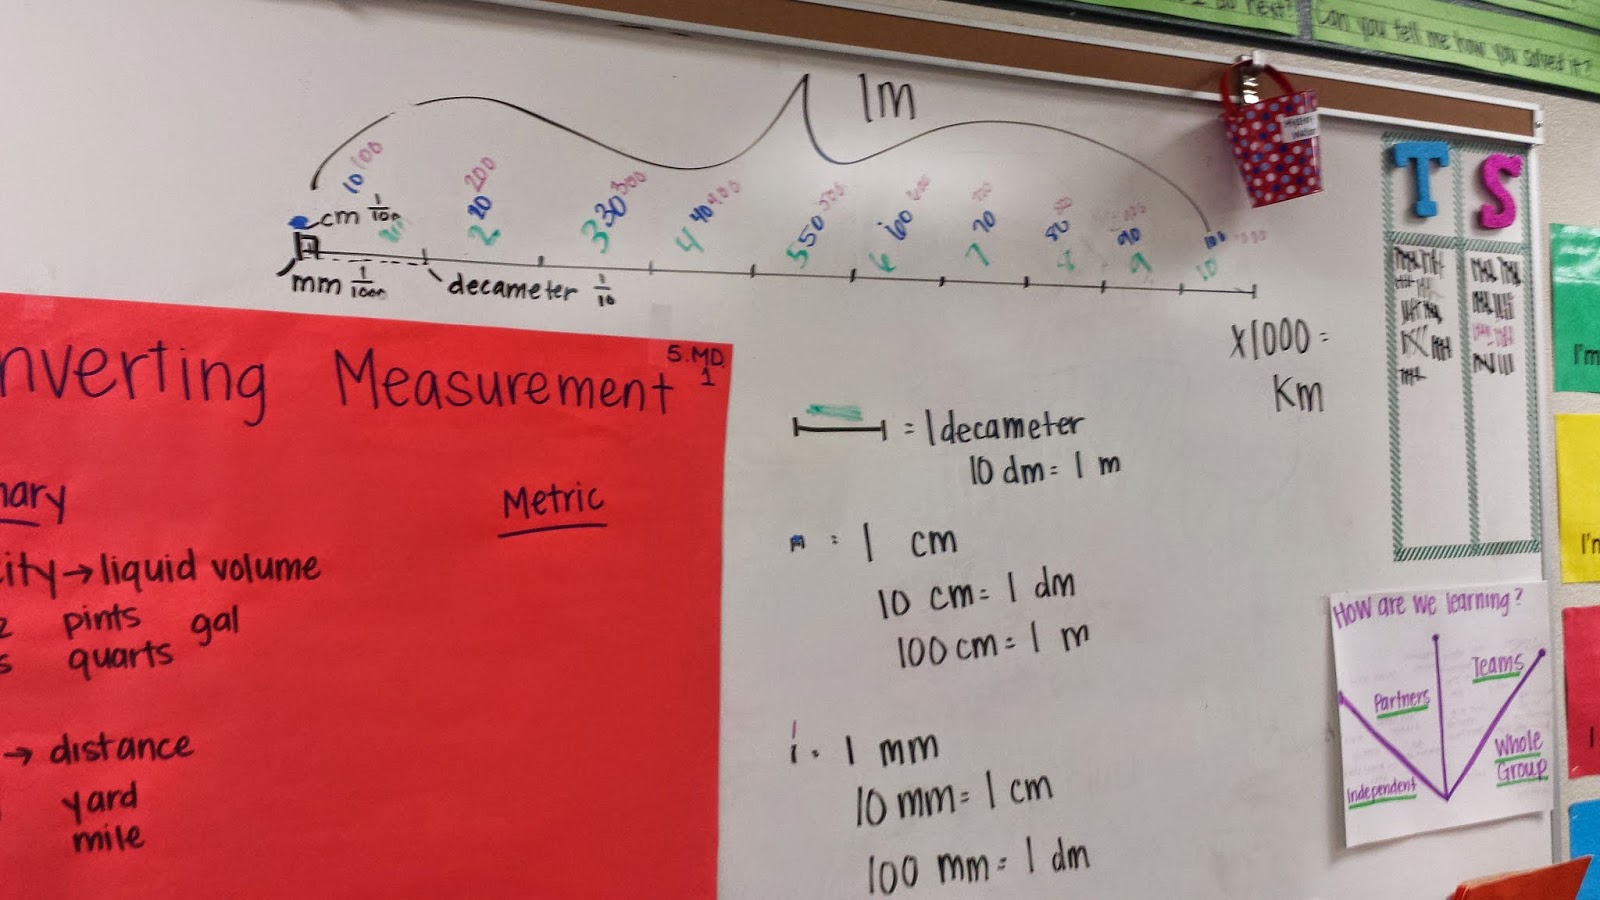 Can you tell me how you solved it?
1m
10 100
20 200
30 300
40 400
50 500
60 600
70
80
90
100
cm 1/100
2
3
4
5
6
7
8
9
10
mm 1/1000
decameter 1/10
T S
x1000 =
Km
nverting Measurement
5.MD.
1
= 1 decameter
10 dm = 1 m
Metric
= 1 cm
10 cm = 1 dm
100 cm = 1 m
→ liquid volume
pints gal
quarts
→ distance
yard
mile
= 1 mm
10 mm = 1 cm
100 mm = 1 dm
How are we learning?
Partners
Teams
Independent
Whole
Group
I'm